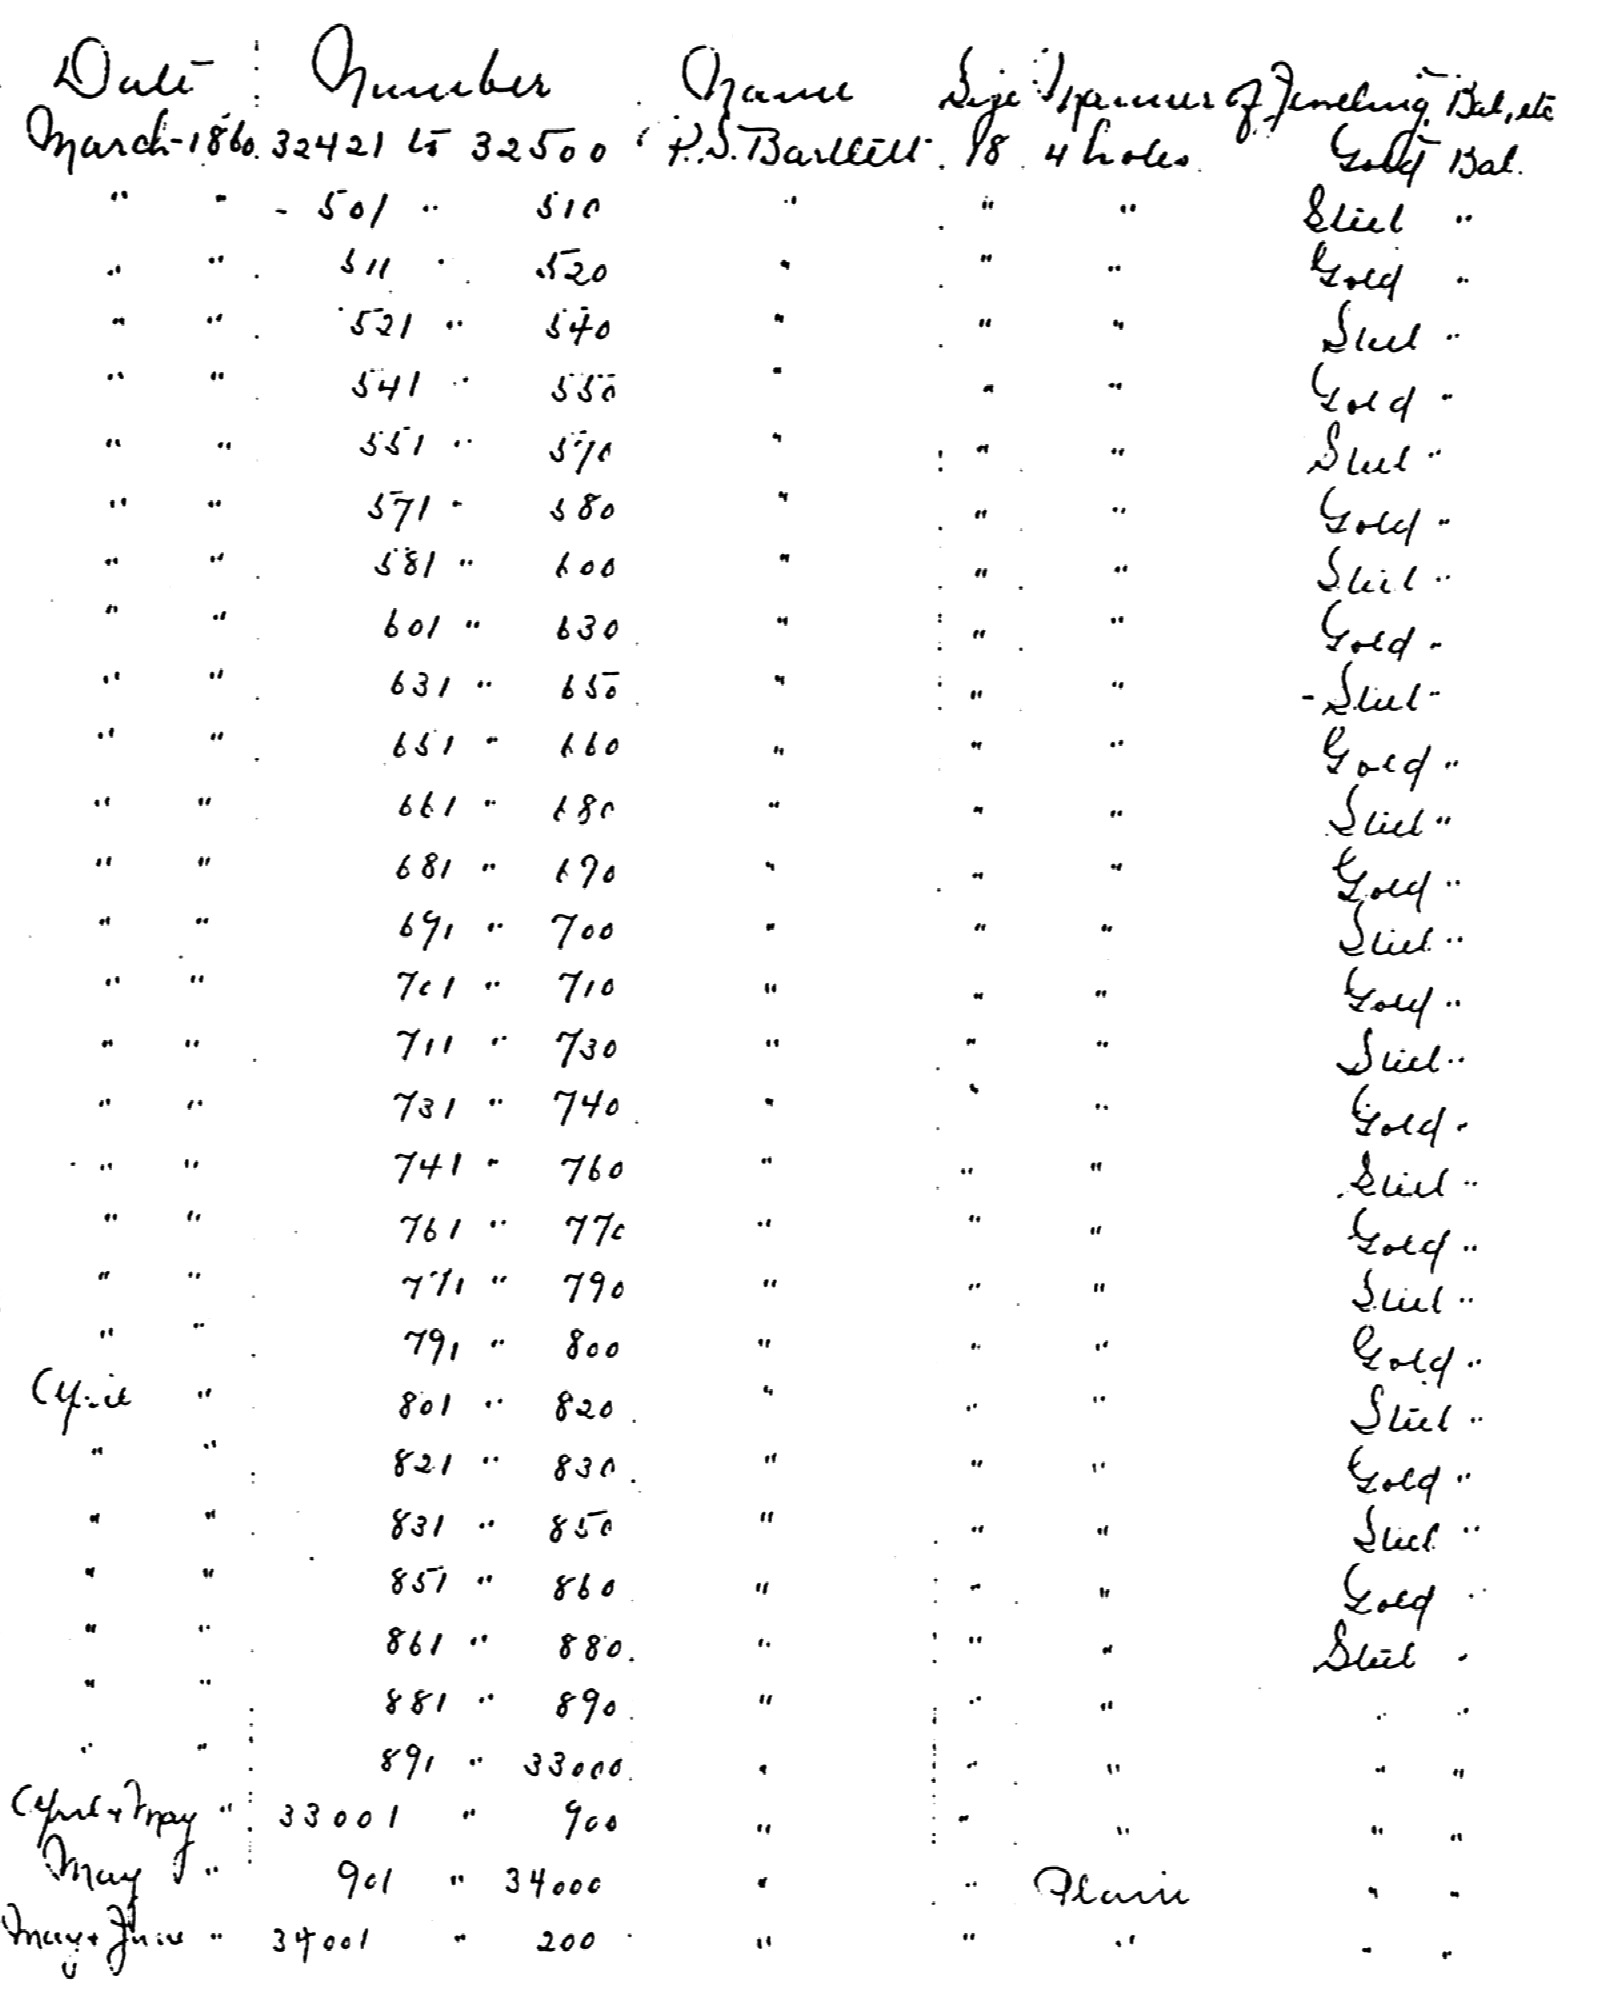 Date Number Name Size Manner of Jeweling, Bal, etc
March-1860. 32421 to 32500 P.S. Bartlett. 18 4 holes. Gold Bal.
" " - 501 " 510 " " " Steel "
" " 511 " 520 " " " Gold "
" " 521 " 540 " " " Steel "
" " 541 " 550 " " " Gold "
" " 551 " 570 " " " Steel "
" " 571 " 580 " " " Gold "
" " 581 " 600 " " " Steel "
" " 601 " 630 " " " Gold "
" " 631 " 650 " " " - Steel "
" " 651 " 660 " " " Gold "
" " 661 " 680 " " " Steel "
" " 681 " 690 " " " Gold "
" " 691 " 700 " " " Steel "
" " 701 " 710 " " " Gold "
" " 711 " 730 " " " Steel "
" " 731 " 740 " " " Gold "
" " 741 " 760 " " " Steel "
" " 761 " 770 " " " Gold "
" " 771 " 790 " " " Steel "
" " 791 " 800 " " " Gold "
April " 801 " 820 " " " Steel "
" " 821 " 830 " " " Gold "
" " 831 " 850 " " " Steel "
" " 851 " 860 " " " Gold "
" " 861 " 880 " " " Steel "
" " 881 " 890 " " " " "
" " 891 " 33000 " " " " "
April + May " 33001 " 900 " " " " "
May " 901 " 34000 " " Plain " "
May + June " 34001 " 200 " " " " "